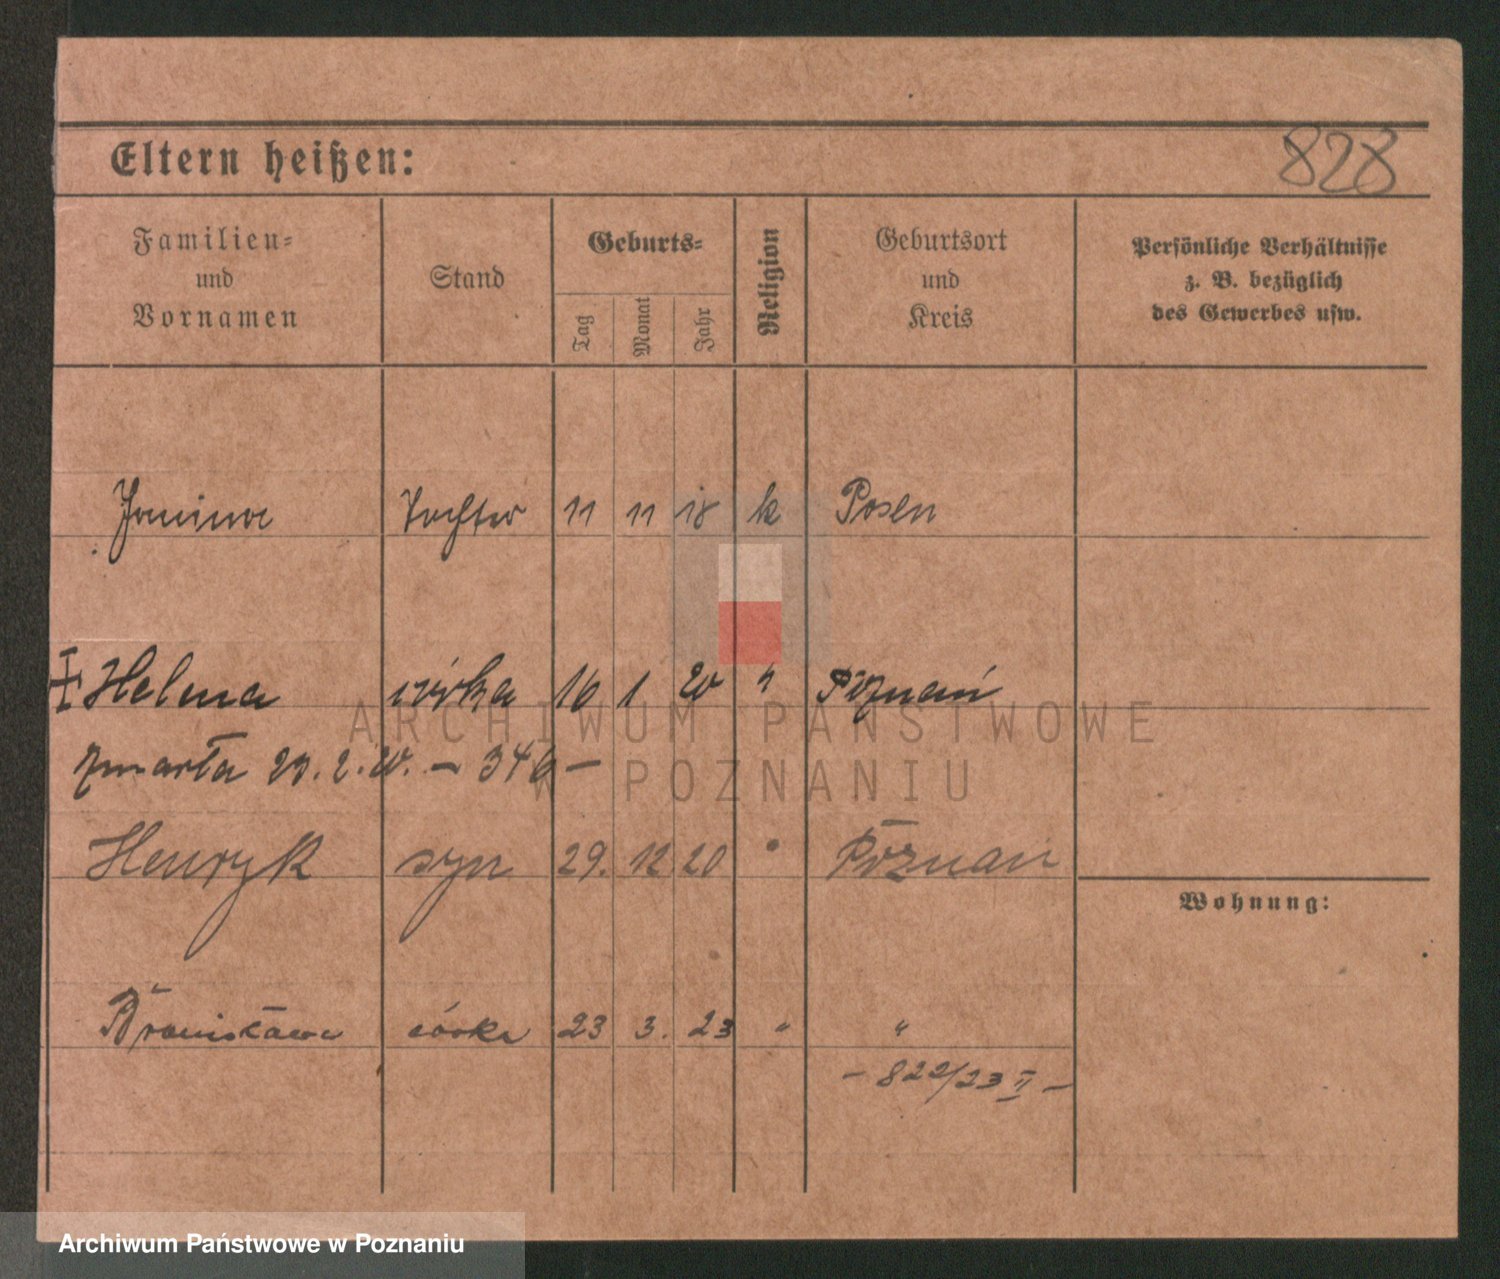 828
Eltern heißen:
Familien-
und
Vornamen
Stand
Geburts-
Tag
Monat
Jahr
Religion
Geburtsort
und
Kreis
Persönliche Verhältnisse
z. B. bezüglich
des Gewerbes usw.
Janina Tochter 11 11 18 k Posen
Helena córka 16 1 20 " Poznań
zmarła 2.20. – 346 –
Henryk syn 29. 12 20 " Poznań
Wohnung:
Bronisława córka 23 3. 23 " "
– 822/23 II –
ARCHIWUM PAŃSTWOWE
W POZNANIU
Archiwum Państwowe w Poznaniu